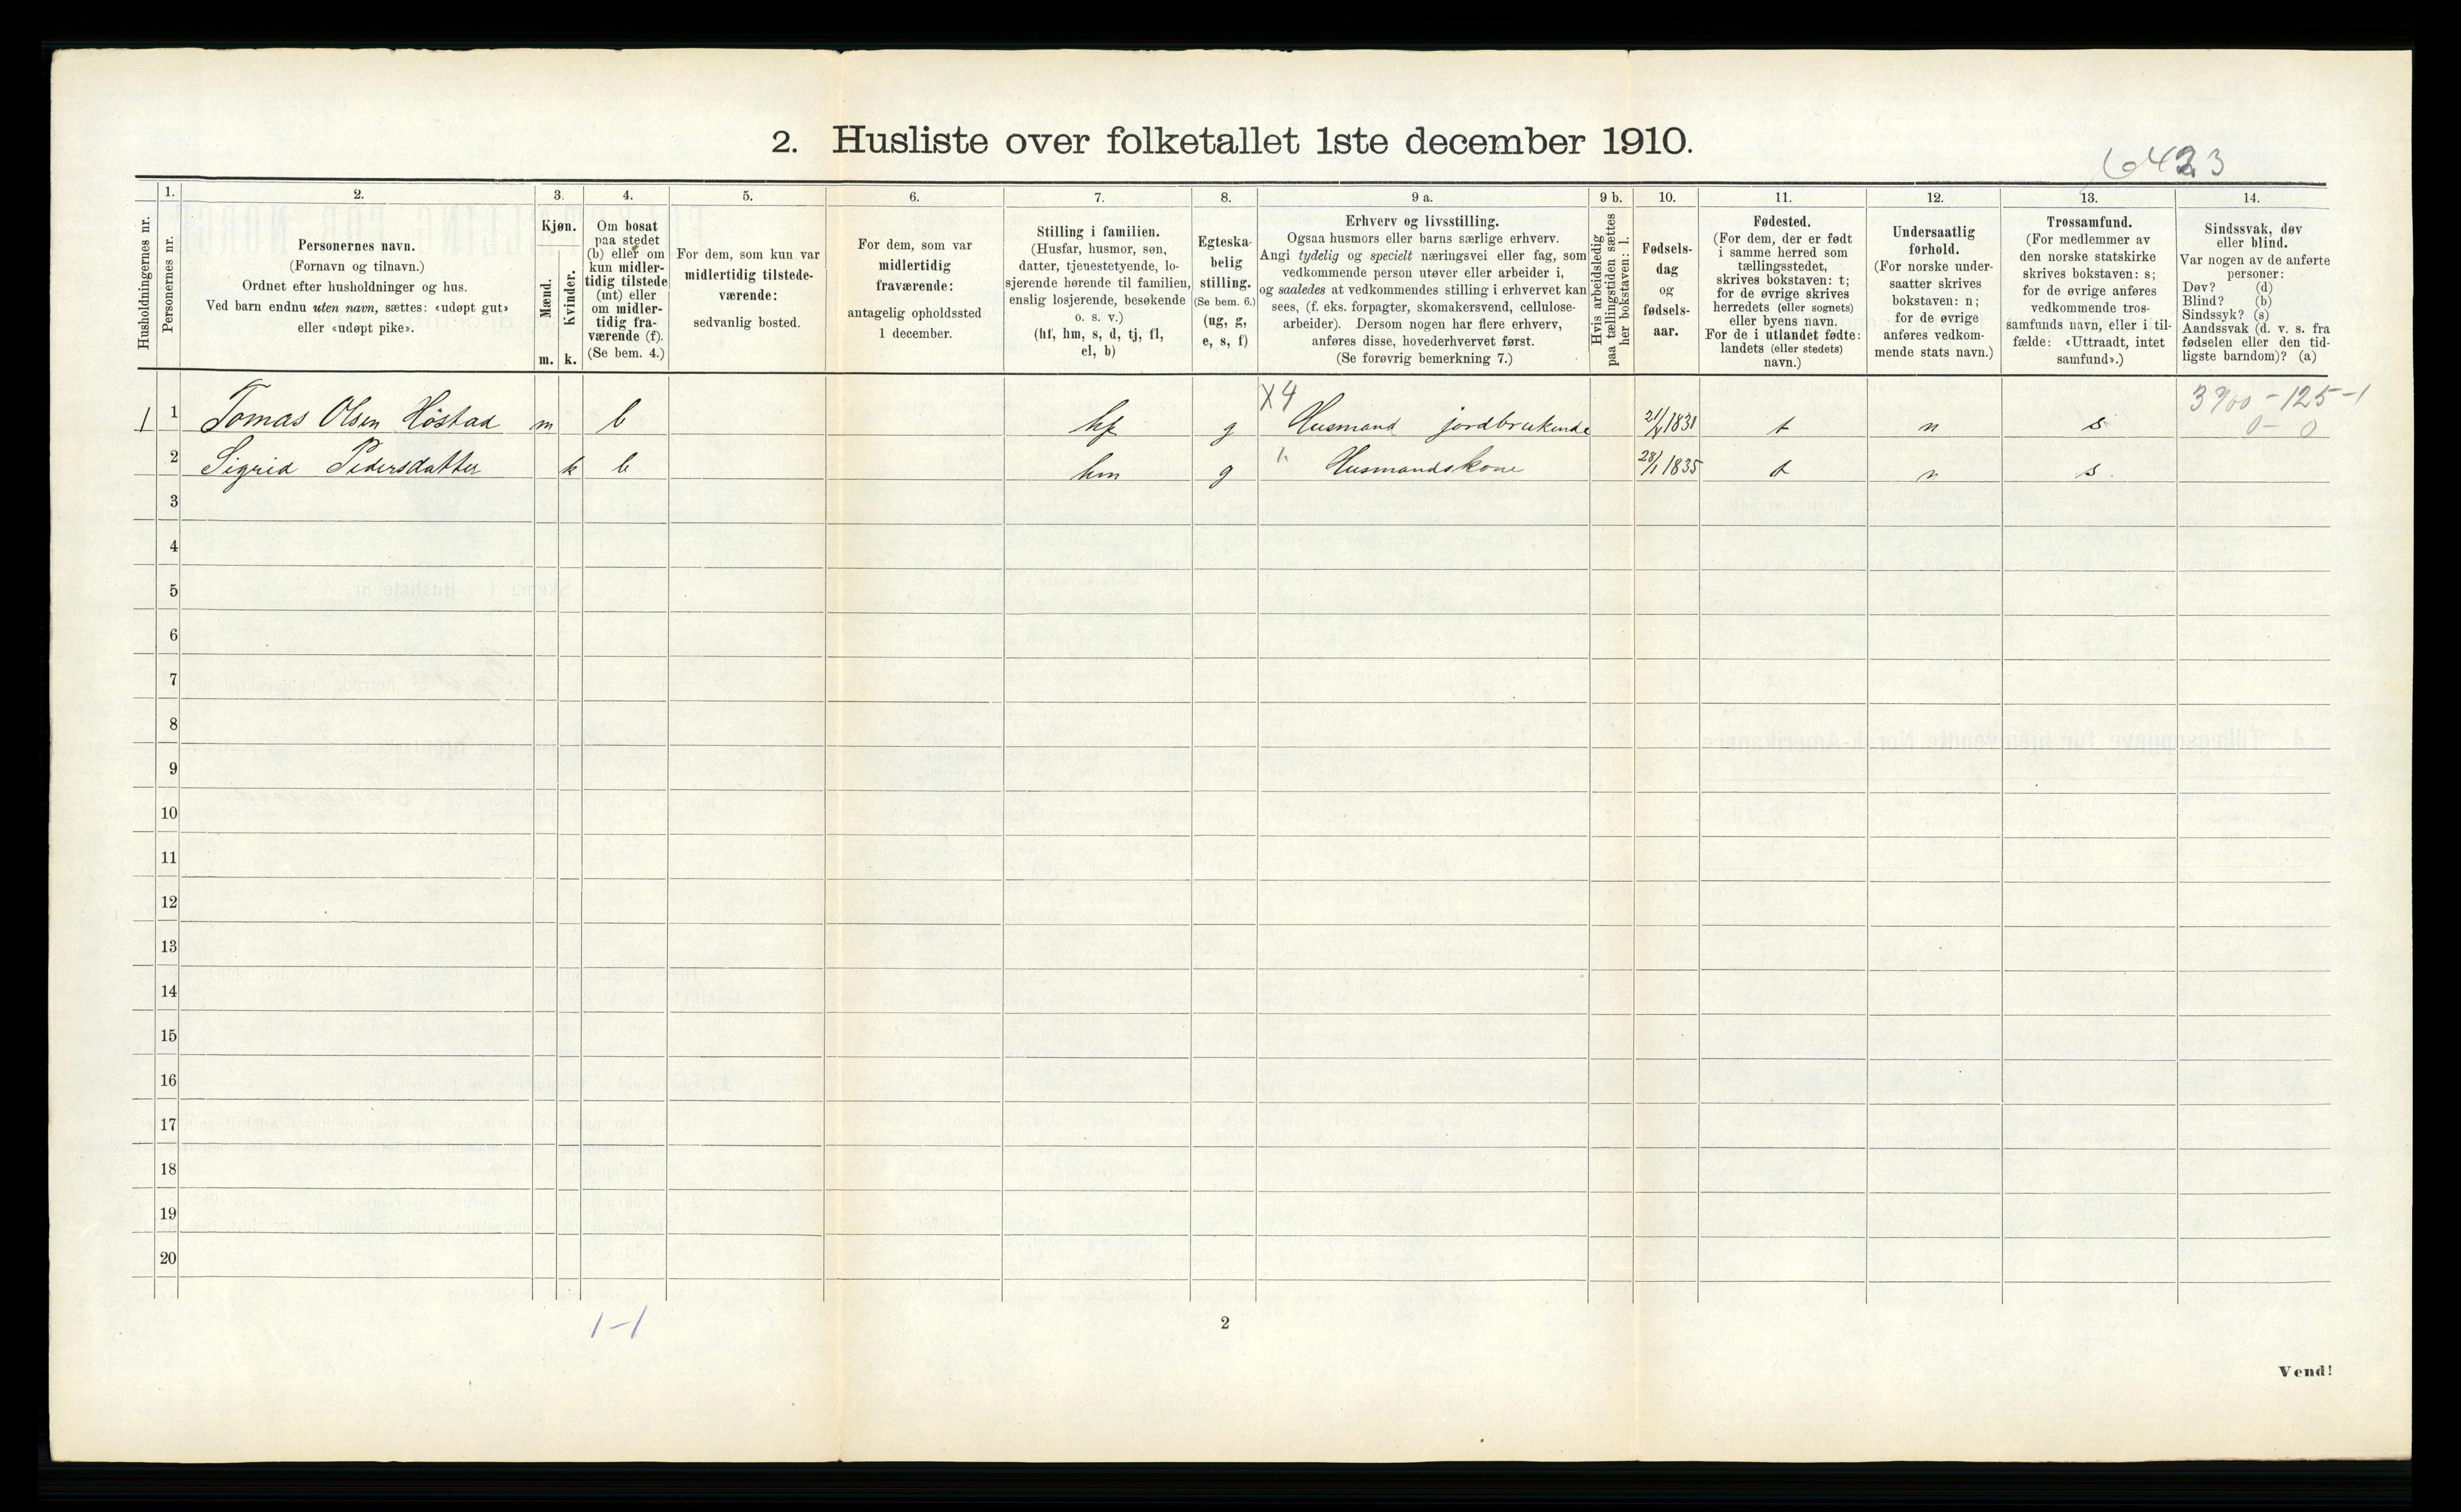 2. Husliste over folketallet 1ste december 1910.
6423
Husholdningernes nr.
1.
Personernes nr.
2.
Personernes navn.
(Fornavn og tilnavn.)
Ordnet efter husholdninger og hus.
Ved barn endnu uten navn, sættes: «udøpt gut»
eller «udøpt pike».
3.
Kjøn.
Mænd.
m.
Kvinder.
k.
4.
Om bosat
paa stedet
(b) eller om
kun midler-
tidig tilstede
(mt) eller
om midler-
tidig fra-
værende (f).
(Se bem. 4.)
5.
For dem, som kun var
midlertidig tilstede-
værende:
sedvanlig bosted.
6.
For dem, som var
midlertidig
fraværende:
antagelig opholdssted
1 december.
7.
Stilling i familien.
(Husfar, husmor, søn,
datter, tjenestetyende, lo-
sjerende hørende til familien,
enslig losjerende, besøkende
o. s. v.)
(hf, hm, s, d, tj, fl,
el, b)
8.
Egteska-
belig
stilling.
(Se bem. 6.)
(ug, g,
e, s, f)
9 a.
Erhverv og livsstilling.
Ogsaa husmors eller barns særlige erhverv.
Angi tydelig og specielt næringsvei eller fag, som
vedkommende person utøver eller arbeider i,
og saaledes at vedkommendes stilling i erhvervet kan
sees, (f. eks. forpagter, skomakersvend, cellulose-
arbeider). Dersom nogen har flere erhverv,
anføres disse, hovederhvervet først.
(Se forøvrig bemerkning 7.)
9 b.
Hvis arbeidsledig
paa tællingstiden sættes
her bokstaven: l.
10.
Fødsels-
dag
og
fødsels-
aar.
11.
Fødested.
(For dem, der er født
i samme herred som
tællingsstedet,
skrives bokstaven: t;
for de øvrige skrives
herredets (eller sognets)
eller byens navn.
For de i utlandet fødte:
landets (eller stedets)
navn.)
12.
Undersaatlig
forhold.
(For norske under-
saatter skrives
bokstaven: n;
for de øvrige
anføres vedkom-
mende stats navn.)
13.
Trossamfund.
(For medlemmer av
den norske statskirke
skrives bokstaven: s;
for de øvrige anføres
vedkommende tros-
samfunds navn, eller i til-
fælde: «Uttraadt, intet
samfund».)
14.
Sindssvak, døv
eller blind.
Var nogen av de anførte
personer:
Døv? (d)
Blind? (b)
Sindssyk? (s)
Aandssvak (d. v. s. fra
fødselen eller den tid-
ligste barndom)? (a)
X4
1 1 Tomas Olsen Höstad m b hf g Husmand jordbrukende 1831 t n s 0 - 0
2 Sigrid Pedersdatter k b hm g Husmandskone 28/1 1835 t n s
3
4
5
6
7
8
9
10
11
12
13
14
15
16
17
18
19
20
1-1
2
Vend!